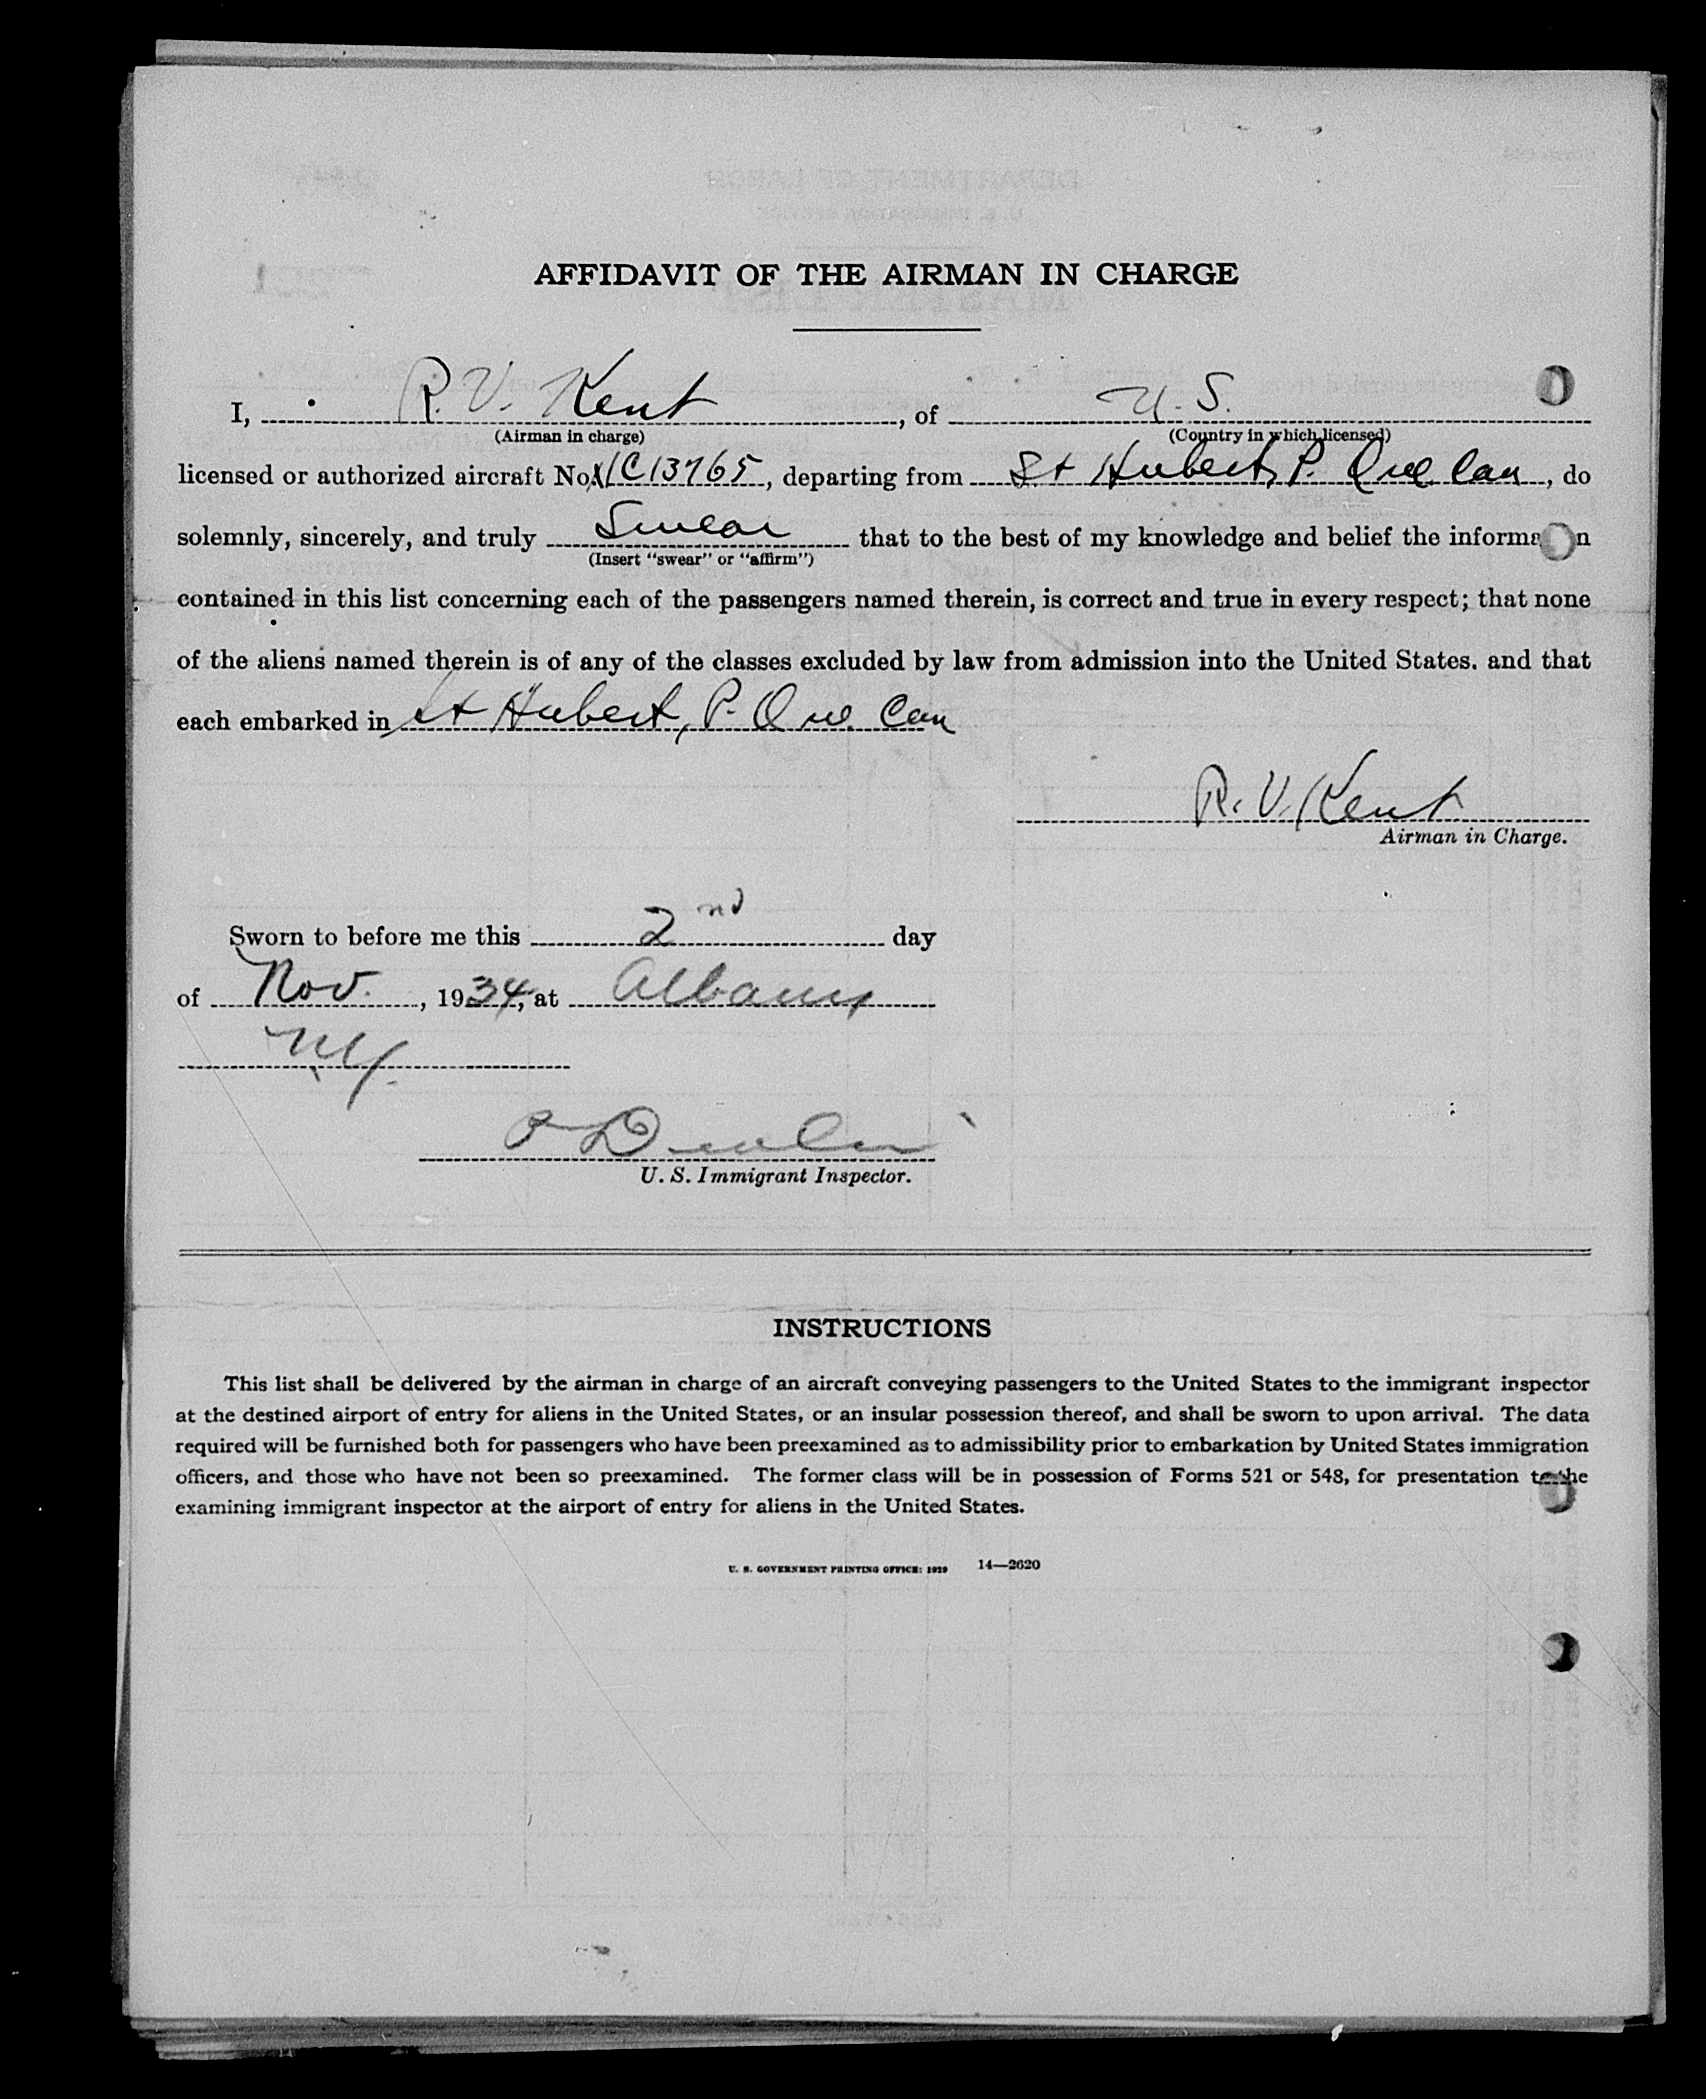 AFFIDAVIT OF THE AIRMAN IN CHARGE
I, R. V. Kent, of U. S.
(Airman in charge) (Country in which licensed)
licensed or authorized aircraft No. NC13765, departing from St Hubert, P. Que Can, do
solemnly, sincerely, and truly Swear that to the best of my knowledge and belief the informa n
(Insert "swear" or "affirm")
contained in this list concerning each of the passengers named therein, is correct and true in every respect; that none
of the aliens named therein is of any of the classes excluded by law from admission into the United States. and that
each embarked in St Hubert, P. Que. Can
R. V. Kent
Airman in Charge.
Sworn to before me this 2nd day
of Nov., 1934, at Albany
NY.
U. S. Immigrant Inspector.
INSTRUCTIONS
This list shall be delivered by the airman in charge of an aircraft conveying passengers to the United States to the immigrant inspector
at the destined airport of entry for aliens in the United States, or an insular possession thereof, and shall be sworn to upon arrival. The data
required will be furnished both for passengers who have been preexamined as to admissibility prior to embarkation by United States immigration
officers, and those who have not been so preexamined. The former class will be in possession of Forms 521 or 548, for presentation to the
examining immigrant inspector at the airport of entry for aliens in the United States.
U. S. GOVERNMENT PRINTING OFFICE: 1929 14—2620